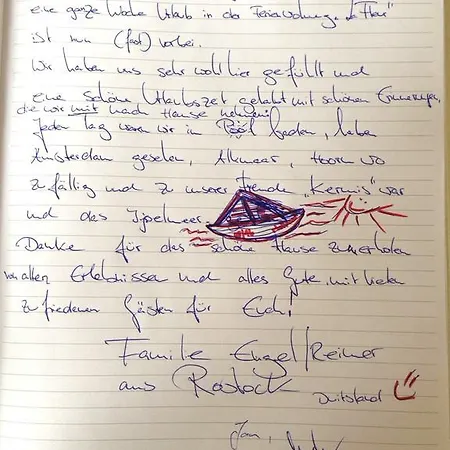 eine ganze Woche Urlaub in der Ferienwohnung
ist nun (fast) vorbei.
Wir haben uns sehr wohl hier gefühlt und
eine schöne Urlaubszeit gehabt mit schönen Erinnerungen,
die wir mit nach Hause nehmen!
Jeden Tag waren wir in Pool baden, haben
Amsterdam gesehen, Alkmaar, Hoorn wo
zufällig und zu unserer Freude „Kermis" war
und das Ijselmeer.
Danke für das schöne Hause zum erholen
von allen Erlebnissen und alles Gute, mit lieben
zufriedenen Gästen für Euch!
Familie Engel/Reimer
aus Rostock
Duitsland